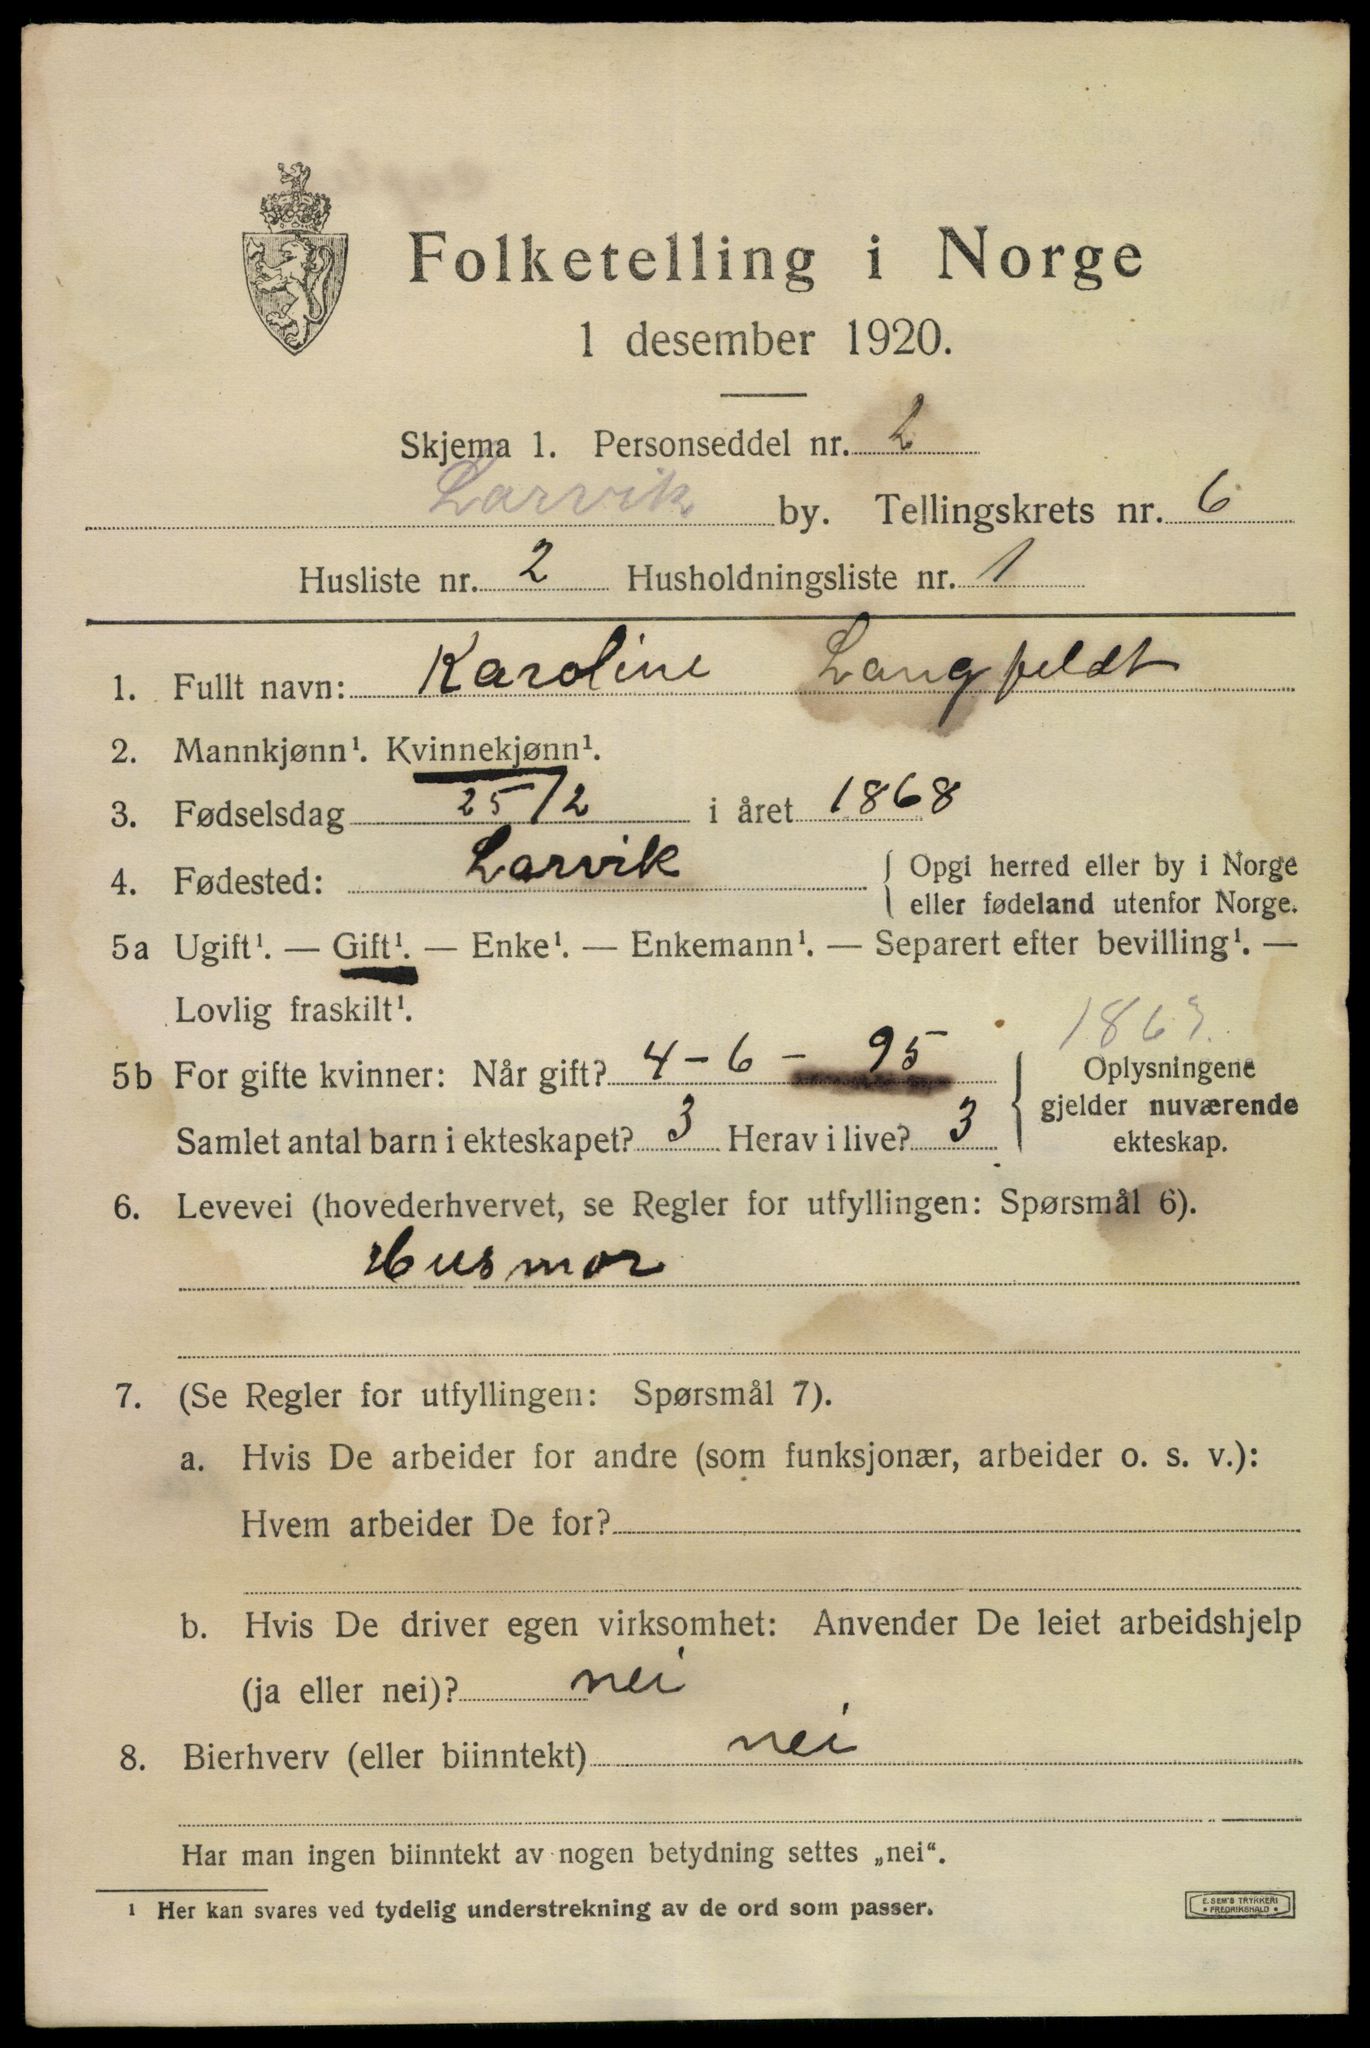 Folketelling i Norge
1 desember 1920.
Skjema 1. Personseddel nr. 2
Larvik by. Tellingskrets nr. 6
Husliste nr. 2 Husholdningsliste nr. 1
1. Fullt navn: Karoline Langfeldt
2. Mannkjønn¹. Kvinnekjønn¹.
3. Fødselsdag 25/2 i året 1868
4. Fødested: Larvik { Opgi herred eller by i Norge
eller fødeland utenfor Norge.
5a Ugift¹. — Gift¹. — Enke¹. — Enkemann¹. — Separert efter bevilling¹. —
Lovlig fraskilt¹.
5b For gifte kvinner: Når gift? 4-6-95
Samlet antal barn i ekteskapet? 3 Herav i live? 3
Oplysningene
gjelder nuværende
ekteskap.
6. Levevei (hovederhvervet, se Regler for utfyllingen: Spørsmål 6).
Husmor
7. (Se Regler for utfyllingen: Spørsmål 7).
a. Hvis De arbeider for andre (som funksjonær, arbeider o. s. v.):
Hvem arbeider De for?
b. Hvis De driver egen virksomhet: Anvender De leiet arbeidshjelp
(ja eller nei)? nei
8. Bierhverv (eller biinntekt) nei
Har man ingen biinntekt av nogen betydning settes „nei“.
¹ Her kan svares ved tydelig understrekning av de ord som passer.
E. SEM'S TRYKKERI
FREDRIKSHALD